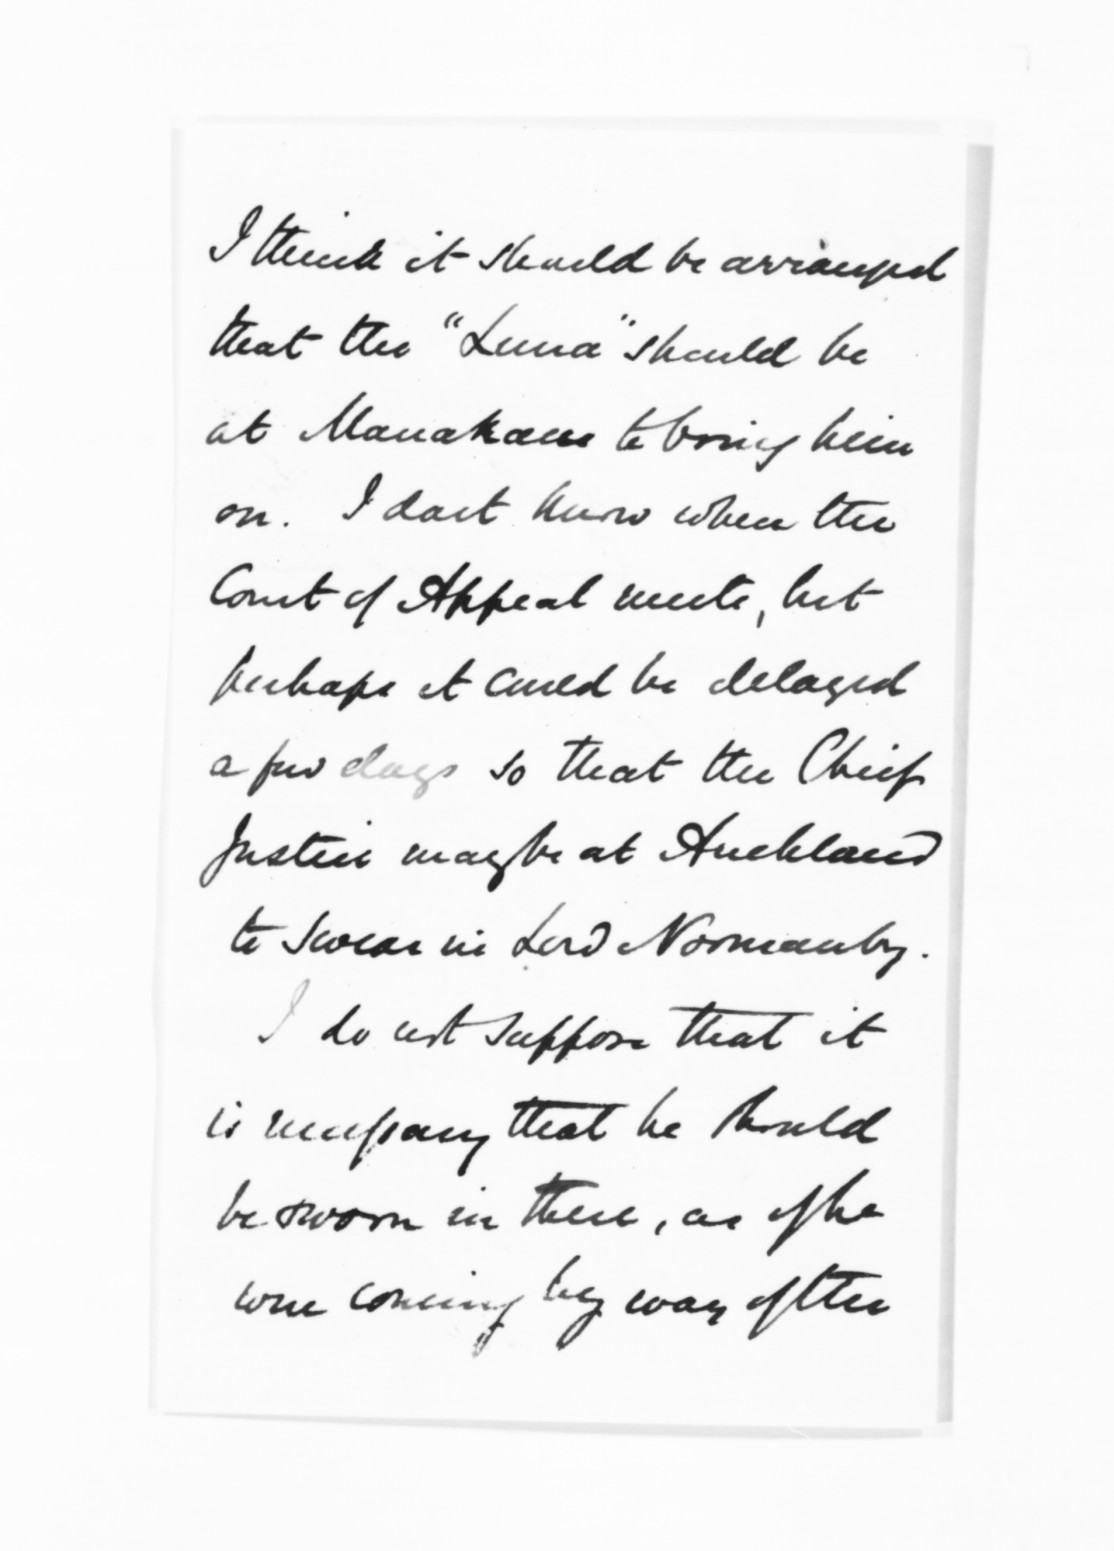 I think it should be arranged
that the "Luna" should be
at Manakau to bring him
on. I dont know when the
Court of Appeal meets, but
perhaps it could be delayed
a few days so that the Chief
Justice may be at Auckland
to swear in Lord Normanby.
I do not suppose that it
is necessary that he should
be sworn in there, as if he
were coming by way of the